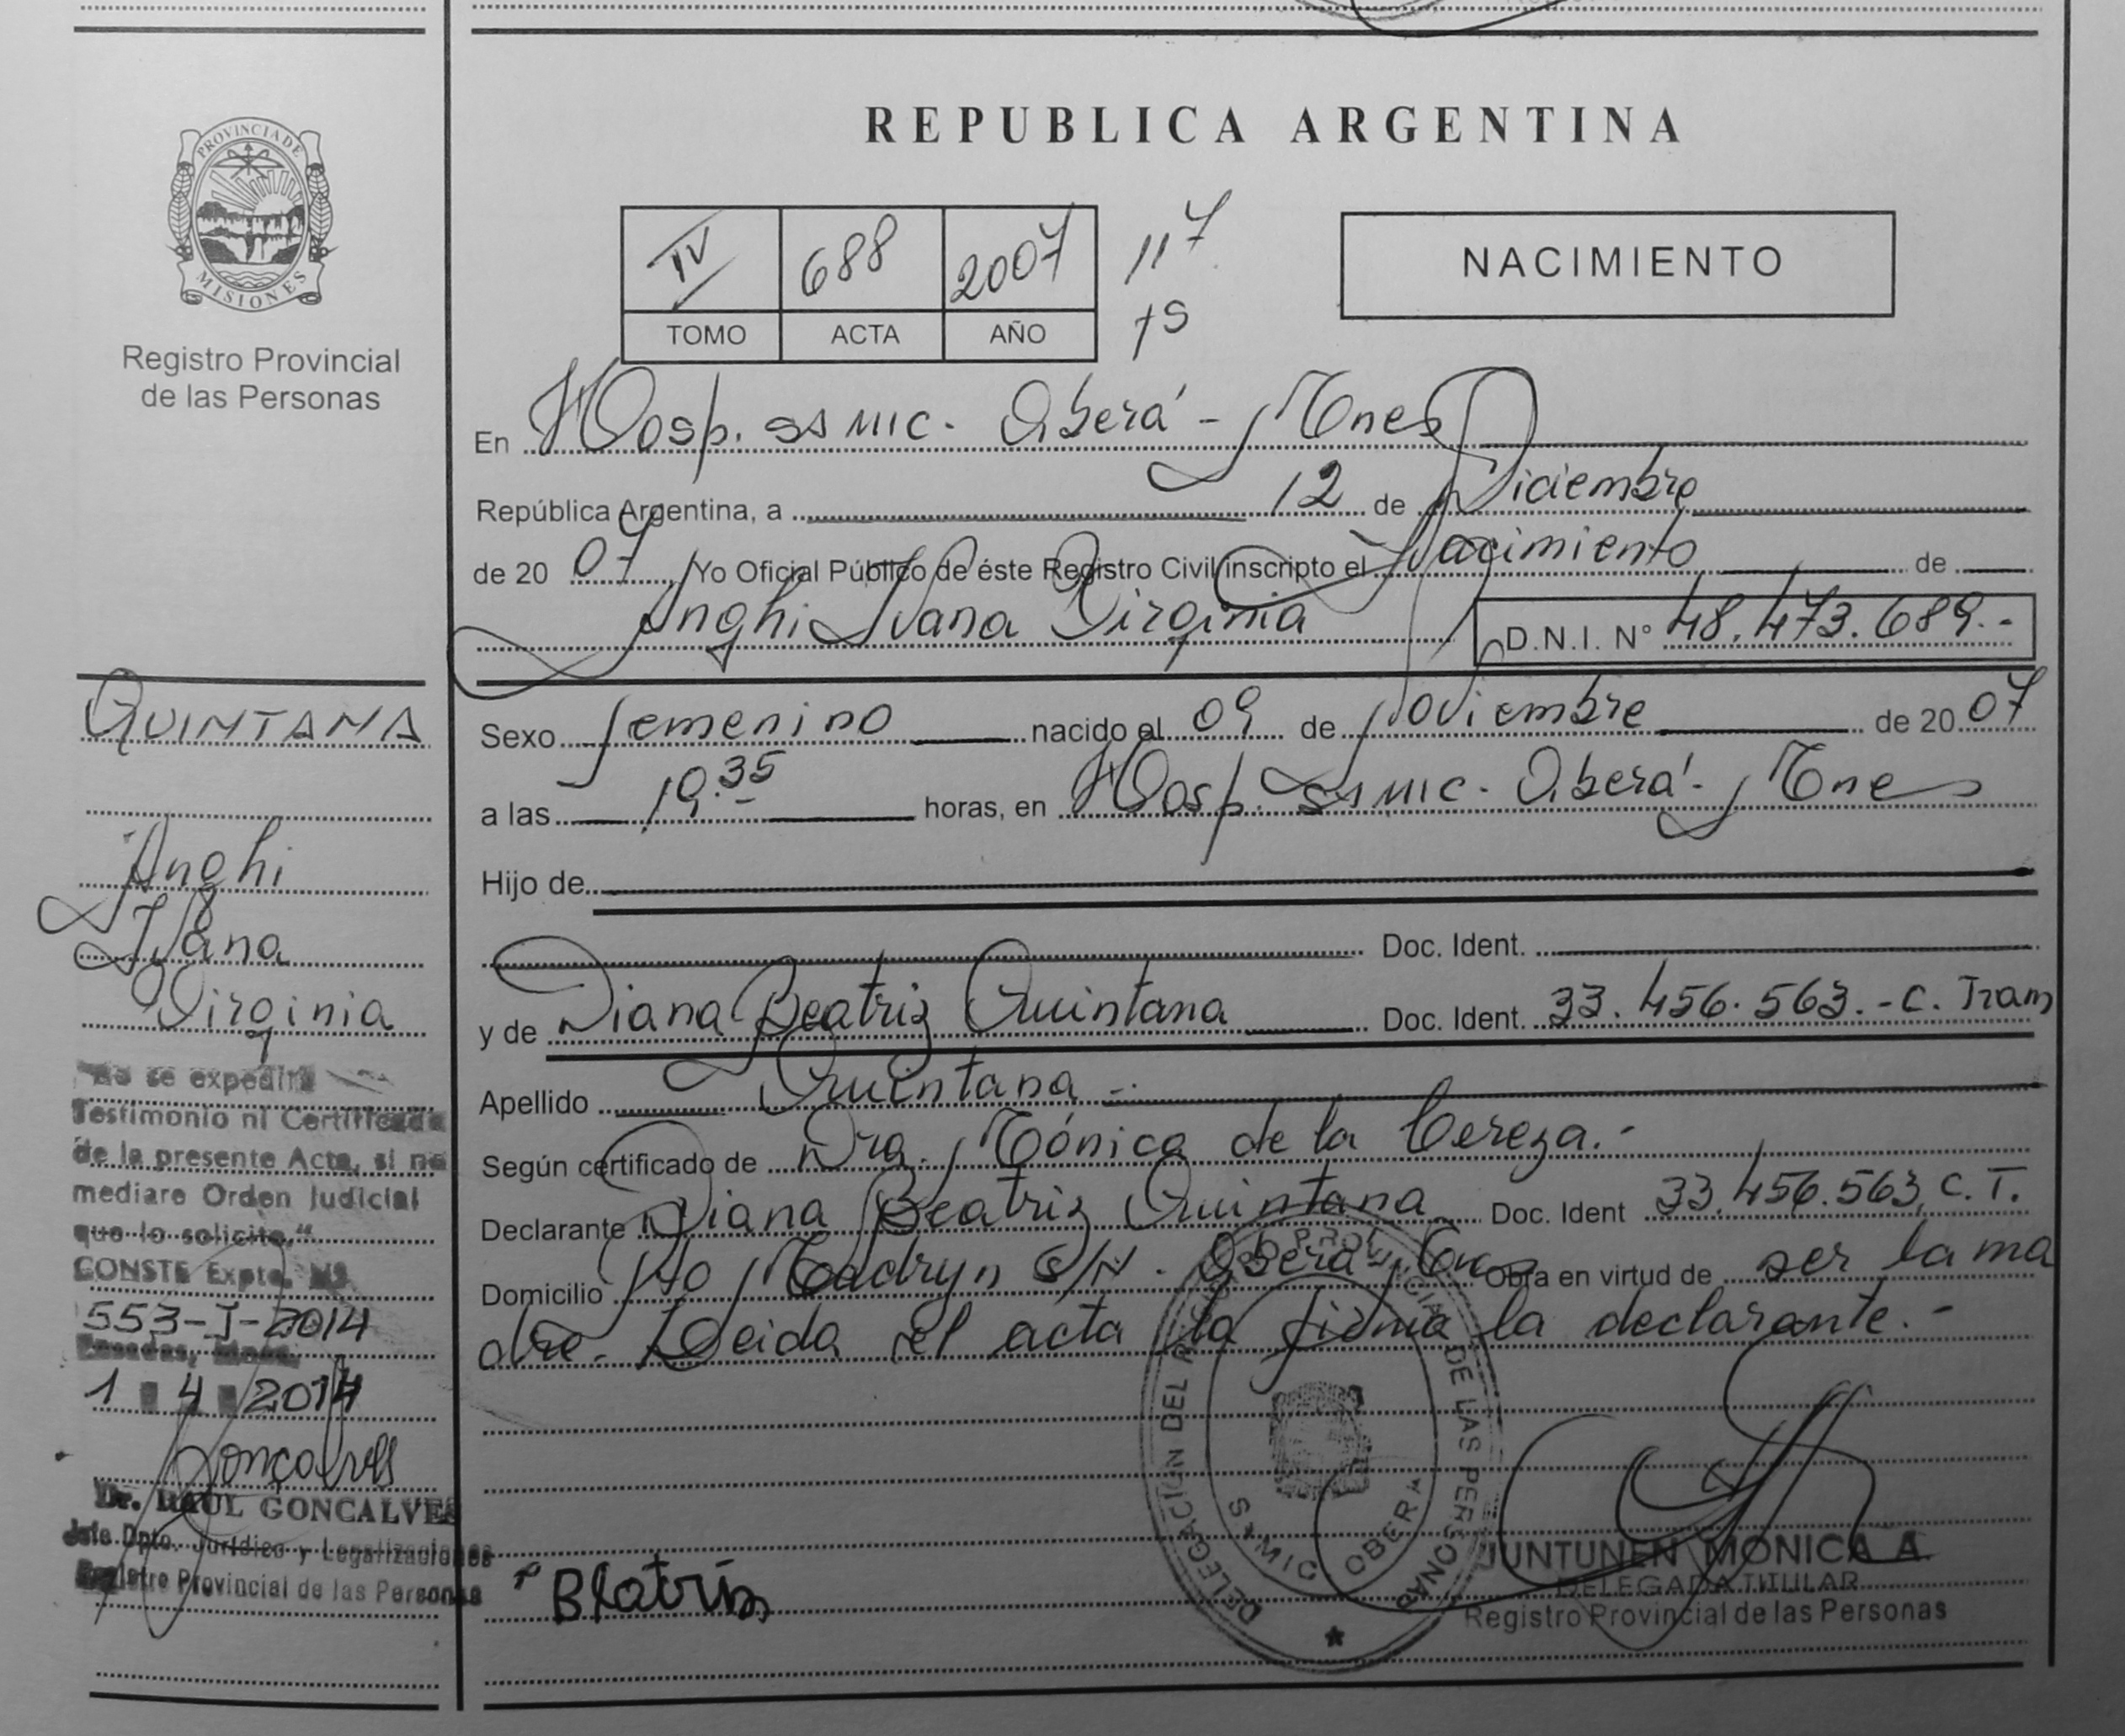 REPUBLICA ARGENTINA
PROVINCIA DE
MISIONES
Registro Provincial
de las Personas
IV 688 2007 117
TOMO ACTA AÑO
NACIMIENTO
En Hosp. SAMIC - Oberá - Mnes
República Argentina, a 12 de Diciembre
de 20 07 Yo Oficial Público de éste Registro Civil inscripto el Nacimiento de
Anghi Ivana Virginia D.N.I. Nº 48.473.689.-
QUINTANA
Anghi
Ivana
Virginia
Sexo femenino nacido el 09 de Noviembre de 20 07
a las 19.35 horas, en Hosp. SAMIC - Oberá - Mnes
Hijo de
Doc. Ident.
y de Diana Beatriz Quintana Doc. Ident. 33.456.563.- C. Tram
Apellido Quintana -.
Según certificado de Dra. Mónica de la Cereza.-
Declarante Diana Beatriz Quintana Doc. Ident 33.456.563, C.T.
Domicilio Pto Madryn S/N. Oberá - Mnes Obra en virtud de ser la ma
dre. Leida el acta la firma la declarante.-
"No se expedirá
Testimonio ni Certificado
de la presente Acta, si no
mediare Orden Judicial
que lo solicite."
CONSTE Expte. Nº
553-J-2014
Posadas, Mnes.
1 4 2014
Gonçalves
Dr. RAUL GONCALVES
Jefe Dpto. Jurídico y Legalizaciones
Registro Provincial de las Personas
Beatriz
DELEGACION DEL REGISTRO PROVINCIAL DE LAS PERSONAS
SAMIC OBERA
JUNTUNEN MONICA A.
DELEGADA TITULAR
Registro Provincial de las Personas